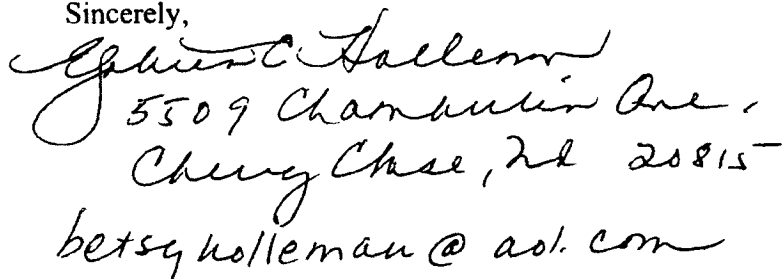 Sincerely,
C Holleman
5509 Chamberlin Ave.
Chevy Chase, Md 20815
betsyholleman@aol.com